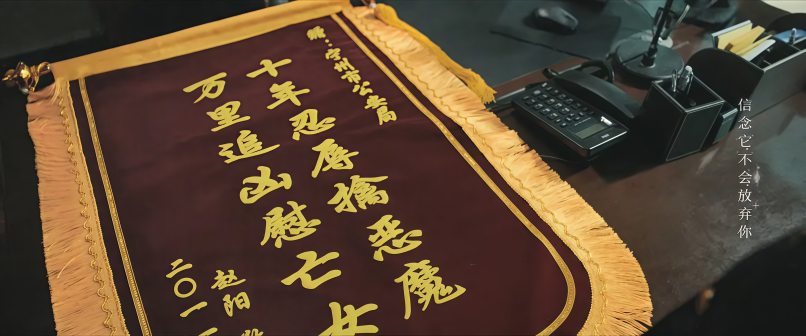 赠：宁州市公安局
十年忍辱擒恶魔
万里追凶慰亡女
赵阳
二〇一
信念它不会放弃你